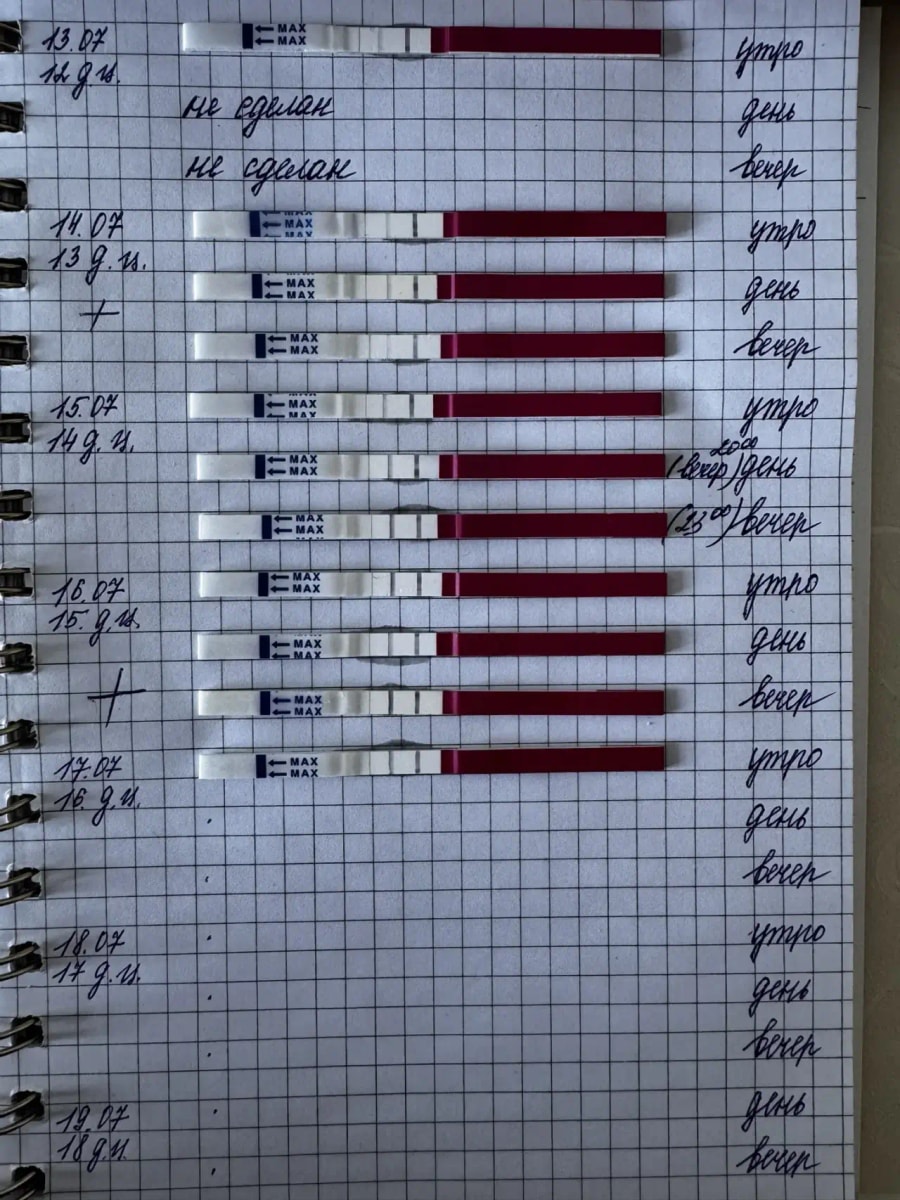 MAX
13.07 MAX утро
12 д.ц.
не сделан день
не сделан вечер
MAX
14.07 MAX утро
MAX
13 д.ц.
MAX
MAX день
+
MAX
MAX вечер
MAX
15.07 MAX утро
MAX
14 д.ц. MAX (вечер 20 00) день
MAX
MAX
MAX (23 00) вечер
MAX
MAX
16.07 MAX утро
15. д.ц.
MAX
MAX день
MAX
+ MAX вечер
MAX
17.07 MAX утро
MAX
16. д.ц.
день
вечер
18.07 утро
17 д.ц.
день
вечер
19.07 день
18 д.ц.
вечер